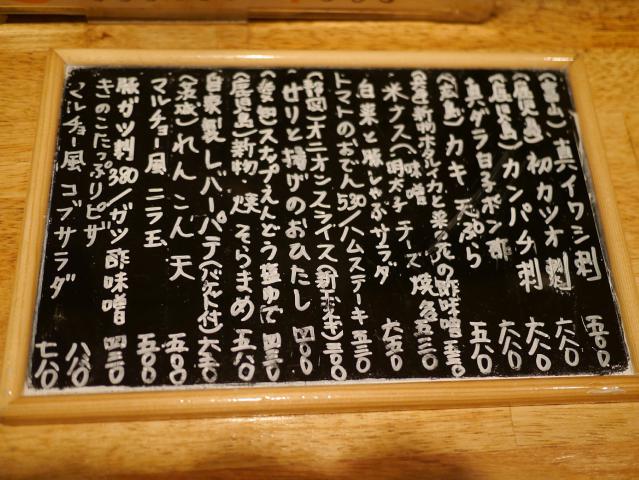 (富山)真イワシ刺 五〇〇
(鹿児島)初カツオ刺 六八〇
(鹿児島)カンパチ刺 六八〇
真ダラ白子ポン酢 六八〇
(広島)カキ天ぷら 五八〇
新物ホタルイカと菜の花の酢味噌
米ナス(味噌 明太子チーズ)焼 各五三〇
白菜と豚しゃぶサラダ 六五〇
トマトのおでん530/ハムステーキ 五三〇
(静岡)オニオンスライス(新玉ネギ) 三〇〇
せりと揚げのおひたし 四〇〇
スナップえんどう塩ゆで 四三〇
(鹿児島)新物 焼そらまめ 五八〇
自家製レバーパテ(バゲット付) 六五〇
(茨城)れんこん天 五〇〇
マルチョー風ニラ玉 五〇〇
豚ガツ刺380/ガツ酢味噌 四三〇
きのこたっぷりピザ 八八〇
マルチョー風コブサラダ 七八〇